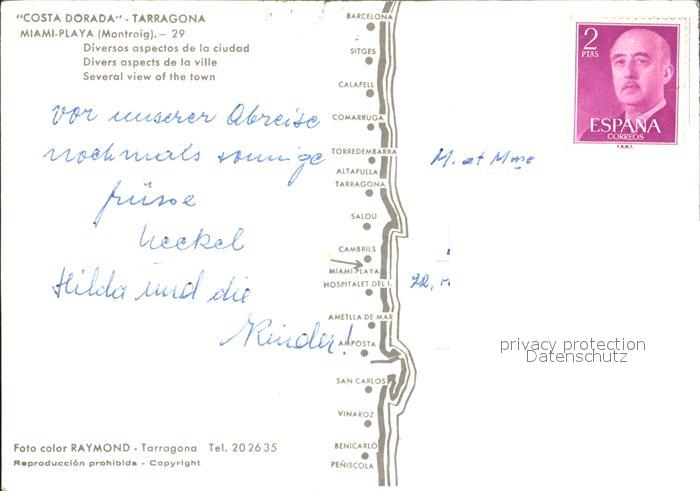 "COSTA DORADA" - TARRAGONA
MIAMI-PLAYA (Montroig). - 29
Diversos aspectos de la ciudad
Divers aspects de la ville
Several view of the town
vor unserer Abreise
nochmals sonnige
Hilda und die
Kinder!
Foto color RAYMOND - Tarragona Tel. 20 26 35
Reproducción prohibida - Copyright
BARCELONA
SITGES
CALAFELL
COMARRUGA
TORREDEMBARRA
ALTAFULLA
TARRAGONA
SALOU
CAMBRILS
MIAMI-PLAYA
HOSPITALET DEL I.
AMETLLA DE MAR
AMPOSTA
SAN CARLOS
VINAROZ
BENICARLÓ
PEÑISCOLA
2
PTAS
ESPAÑA
CORREOS
F.N.M.T.
M. et Mme
22,
privacy protection
Datenschutz